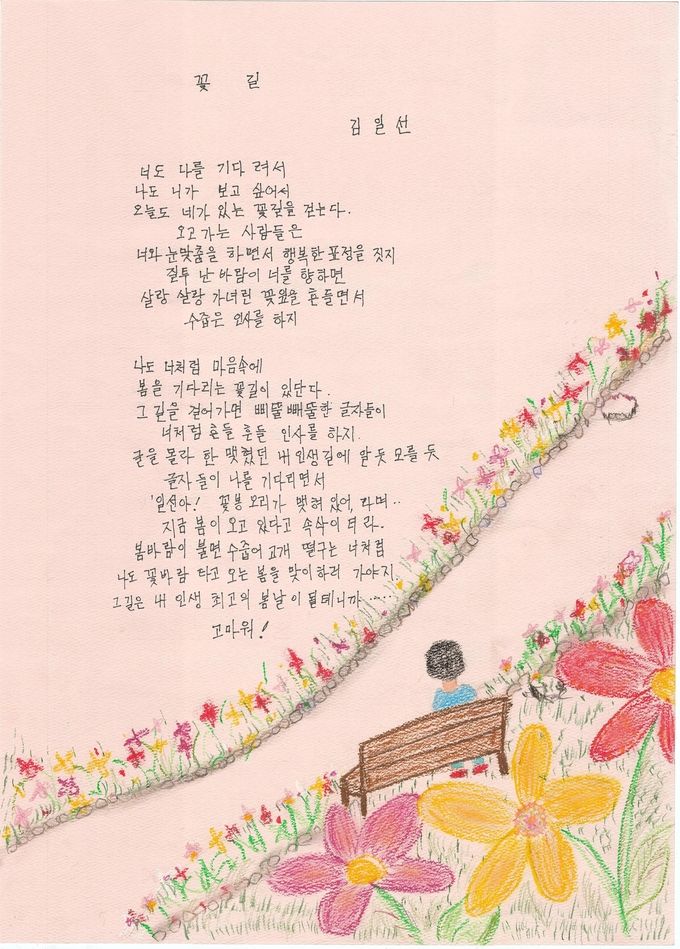 꽃 길
김일선
너도 나를 기다려서
나도 니가 보고 싶어서
오늘도 네가 있는 꽃길을 걷는다.
오고가는 사람들은
너와 눈맞춤을 하면서 행복한 표정을 짓지
질투 난 바람이 너를 향하면
살랑 살랑 가녀린 꽃잎을 흔들면서
수줍은 인사를 하지
나도 너처럼 마음속에
봄을 기다리는 꽃길이 있단다.
그 길을 걸어가면 삐뚤빼뚤한 글자들이
너처럼 흔들 흔들 인사를 하지.
글을 몰라 한 맺혔던 내 인생길에 알 듯 모를 듯
글자들이 나를 기다리면서
'일선아! 꽃봉오리가 맺혀 있어, 라며..
지금 봄이 오고 있다고 속삭이더라.
봄바람이 불면 수줍어 고개 떨구는 너처럼
나도 꽃바람 타고 오는 봄을 맞이하러 가야지
그길은 내 인생 최고의 봄날이 될테니까 ......
고마워!